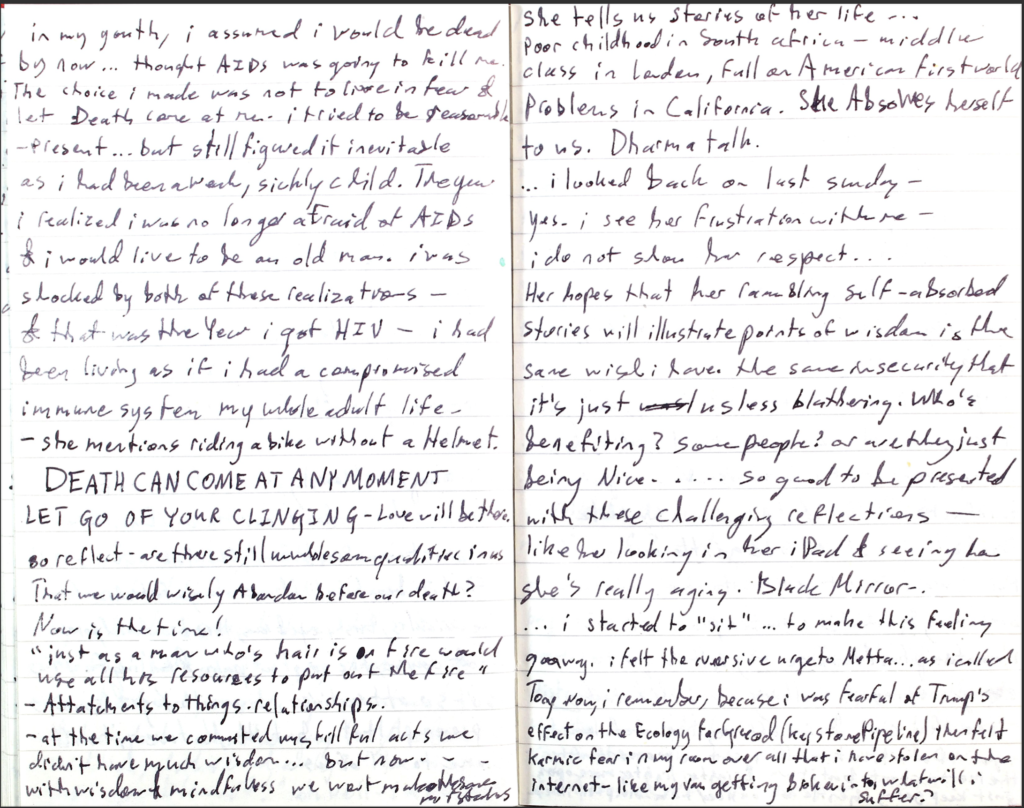 in my youth, i assumed i would be dead
by now... thought AIDs was going to kill me.
The choice i made was not to live in fear &
let Death come at me. i tried to be reasonable
-present... but still figured it inevitable
as i had been a weak, sickly child. The year
i realized i was no longer afraid of AIDs
& i would live to be an old man. i was
shocked by both of these realizations -
& that was the Year i got HIV - i had
been living as if i had a compromised
immune system my whole adult life -
- she mentions riding a bike without a Helmet.
DEATH CAN COME AT ANY MOMENT
LET GO OF YOUR CLINGING - Love will be there,
so reflect - are there still unwholesome qualities in us
That we would wisely Abandon before our death?
Now is the time!
"just as a man who's hair is on fire would
use all his resources to put out the fire"
- Attatchments to things. relationships.
- at the time we committed unskillful acts we
didn't have much wisdom... but now - - -
with wisdom & mindfulness we won't make
the same mistakes
she tells us stories of her life ...
poor childhood in South africa - middle
class in London, full on American first world
Problems in California. She Absolves herself
to us. Dharma talk.
... i looked back on last sunday -
yes. i see her frustration with me -
i do not show her respect...
Her hopes that her rambling self-absorbed
stories will illustrate points of wisdom is the
same wish i have. the same insecurity that
it's just useless blathering. Who's
benefiting? some people? or are they just
being Nice. . . . . so good to be presented
with these challenging reflections -
like her looking in her iPad & seeing how
she's really aging. Black Mirror-.
... i started to "sit" ... to make this feeling
go away. i felt the urge to Metta... as i called
Today now, i remember, because i was fearful of Trump's
effect on the Ecology (keystone Pipeline) then felt
karmic fear in my room over all that i have stolen on the
internet - like my van getting broken into, what will i
suffer?